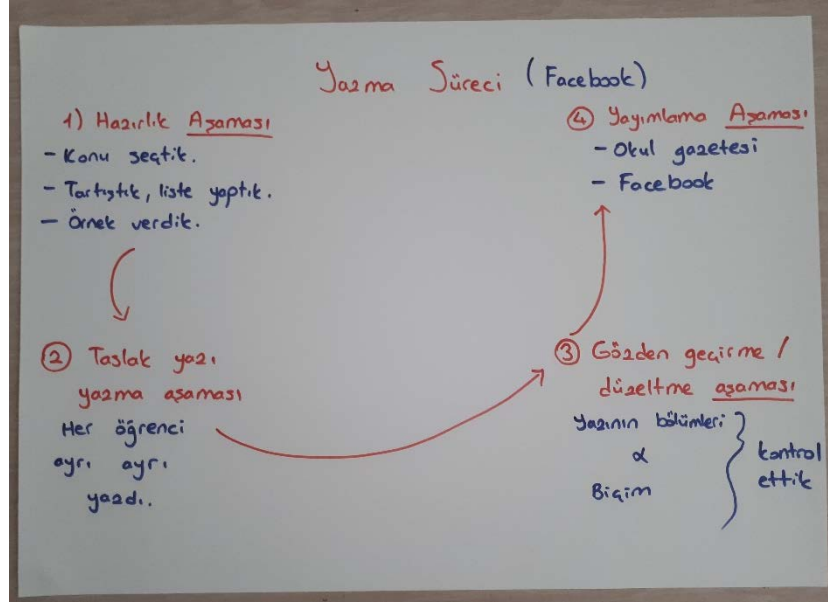 Yazma Süreci (Facebook)
1) Hazırlık Aşaması
- Konu seçtik.
- Tartıştık, liste yaptık.
- Örnek verdik.
② Taslak yazı
yazma aşaması
Her öğrenci
ayrı ayrı
yazdı.
③ Gözden geçirme /
düzeltme aşaması
Yazının bölümleri
α
Biçim
kontrol
ettik
④ Yayımlama Aşaması
- Okul gazetesi
- Facebook